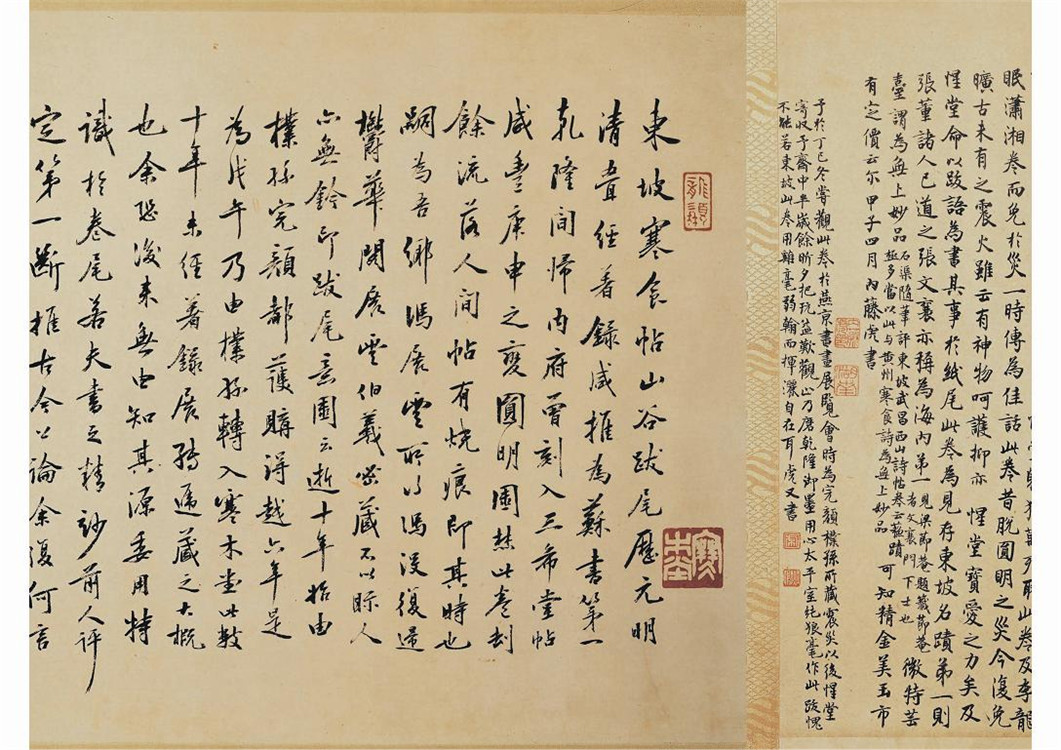 山卷及李龍
眠瀟湘卷而免於災一時傳為佳話此卷昔脫圓明之災今復免
曠古未有之震火雖云有神物呵護抑亦 惺堂寶愛之力矣及
惺堂命以跋語為書其事於紙尾此卷為見存東坡名蹟第一則
張董諸人已道之張文襄亦稱為海內第一 見梁節庵題籤節庵者文襄門下士也 微特芸
臺謂為無上妙品 石渠隨筆評東坡武昌西山詩帖卷云蘓蹟極多當以此与黄州寒食詩為無上妙品 可知精金美玉市
有定價云尔 甲子四月 內藤虎書
予於丁巳冬嘗觀此卷於燕京書畫展覽會時為完顏樸孫所藏震災以後惺堂
寄收予齋中半歲餘昕夕把玩益歎觀止乃磨乾隆御墨用心太平室純狼毫作此跋愧
不能若東坡此卷用雞毫弱翰而揮灑自在耳虎又書
東坡寒食帖山谷跋尾歷元明
清疊經著錄咸推為蘇書第一
乾隆間帰內府曾刻入三希堂帖
咸豐庚申之變圓明園焚此卷刧
餘流落人間帖有燒痕即其時也
嗣為吾鄉馮展雲所得馮沒復歸
鬱華閣展雲伯羲密藏不以眎人
亦無鈐印跋尾意園云逝十年始由
樸孫完顏都護購得越六年是
為戊午乃由樸孫轉入寒木堂此數
十年未經著錄展轉遞藏之大概
也余恐後来無由知其源委用特
識於卷尾若夫書之精妙前人評
定第一斷推古今公論余復何言
寒木堂